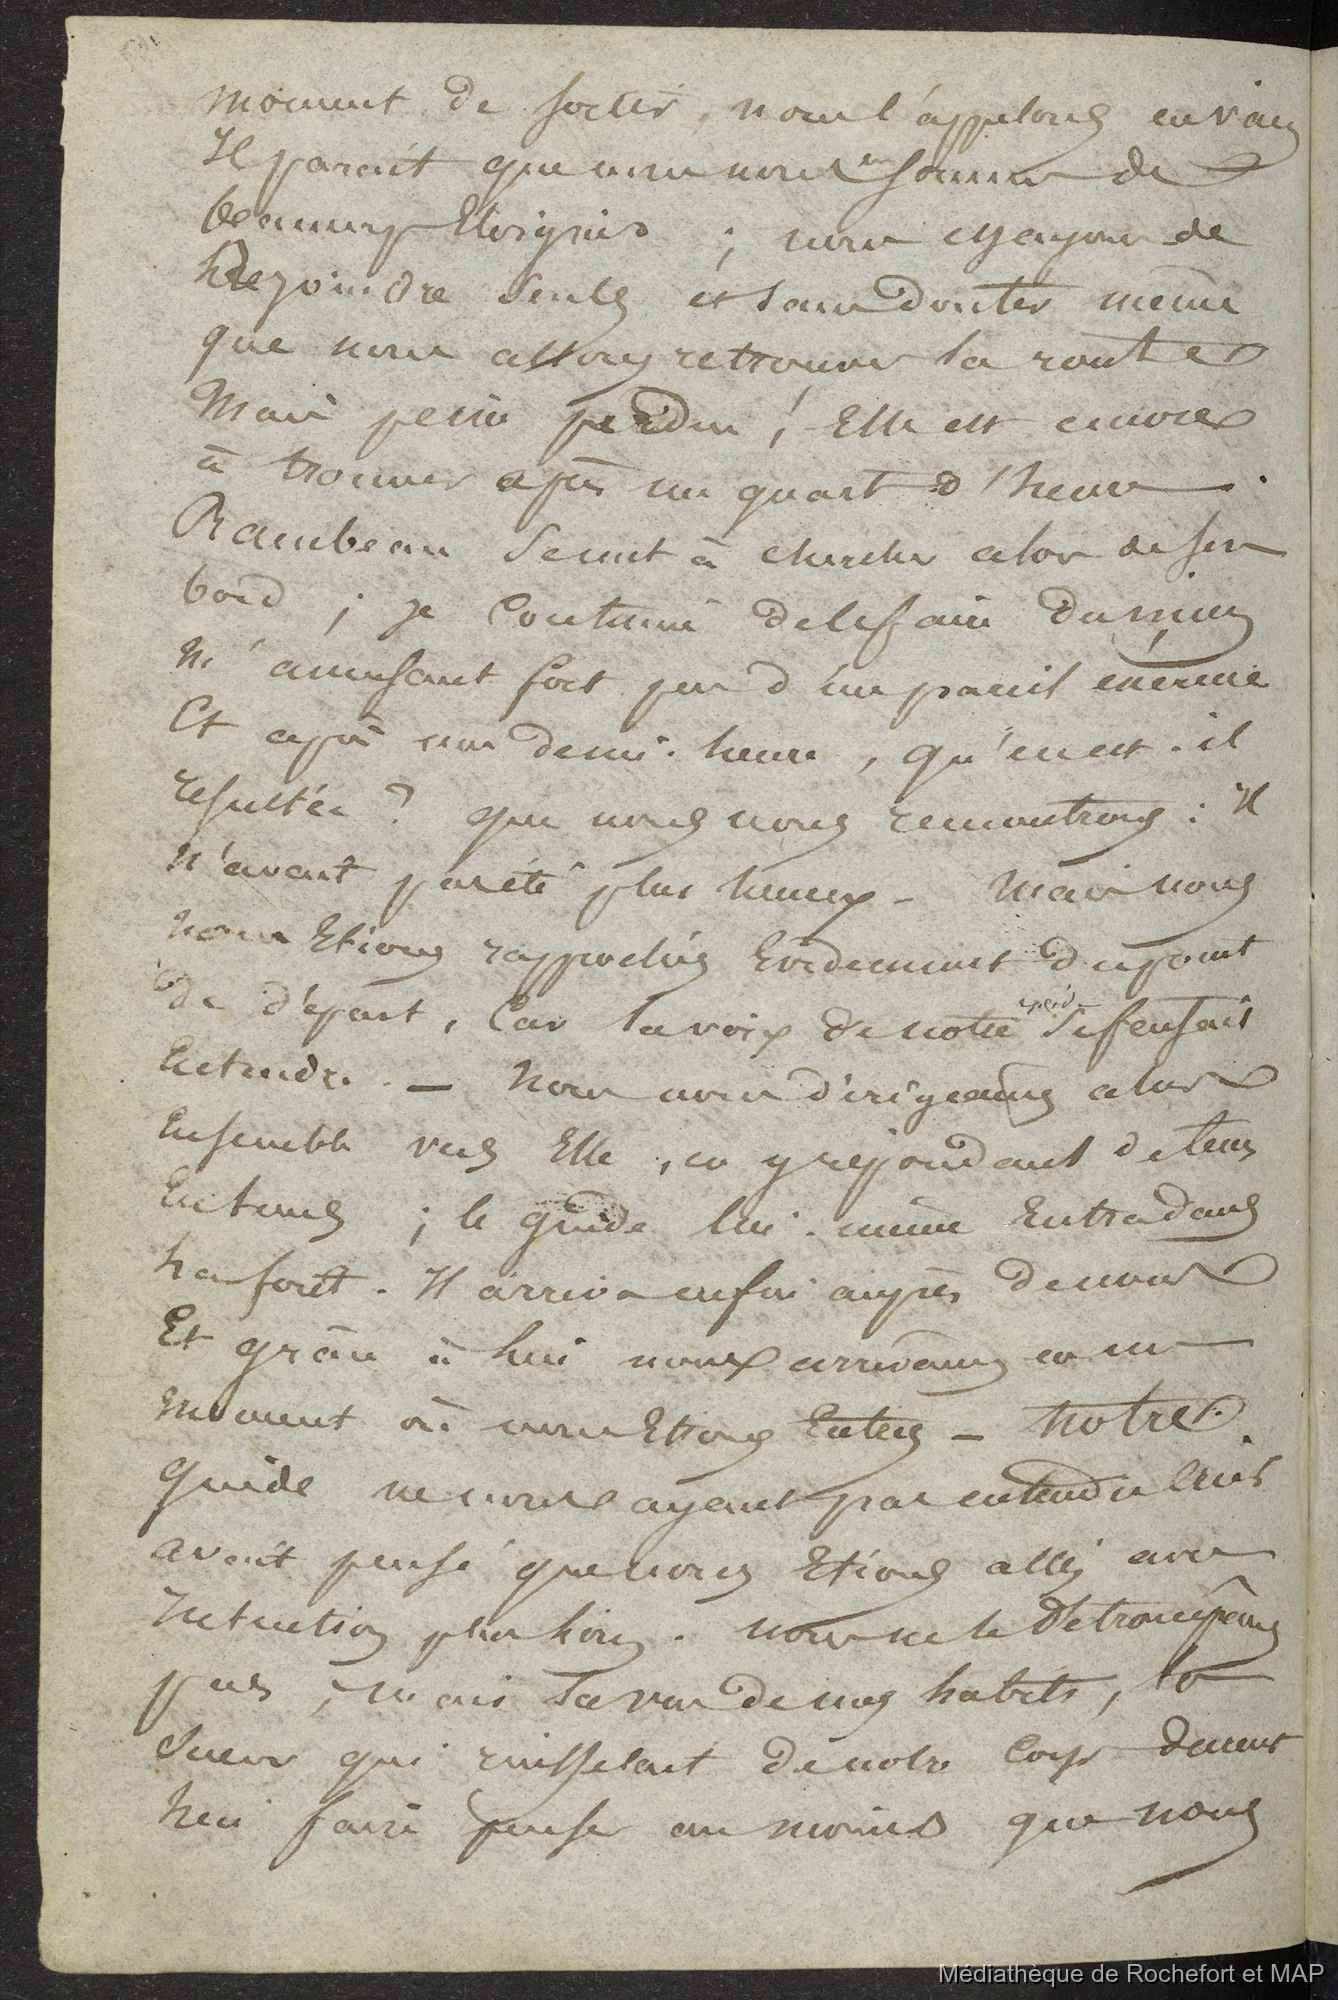 moment de sortir, nous l'appelons en vain
Il parait que nous nous en sommes de
beaucoup Eloignés ; nous essayons de
le rejoindre seuls et sans douter même
que nous allons retrouver la route
Mais peine perdue ! Elle est encore
à trouver après un quart d'heure.
Rambeau se met à chercher alors de son
bord ; je continue de le faire du mien
m'amusant fort peu d'un pareil exercice
Et après une demi-heure, qu'en est-il
résulté ? que nous nous rencontrons : Il
n'avait pas été plus heureux - Mais nous
nous Etions rapprochés Evidemment du point
de départ, Car la voix de notre guide se fesait
Entendre. — Nous nous dirigeâmes alors
Ensemble vers Elle, en y répondant de tems
En tems ; le guide lui-même Entra dans
la forêt. Il arriva enfin auprès de nous
Et grâce à lui nous arrivâmes en un
moment où nous Etions Entrés — Notre
guide ne nous ayant pas entendu crier
avait pensé que nous Etions allés avec
intention plus loin. Nous ne le détrompâmes
pas ; mais la vue de nos habits, la
sueur qui ruisselait de notre corps durent
lui faire penser au moins que nous
Médiathèque de Rochefort et MAP